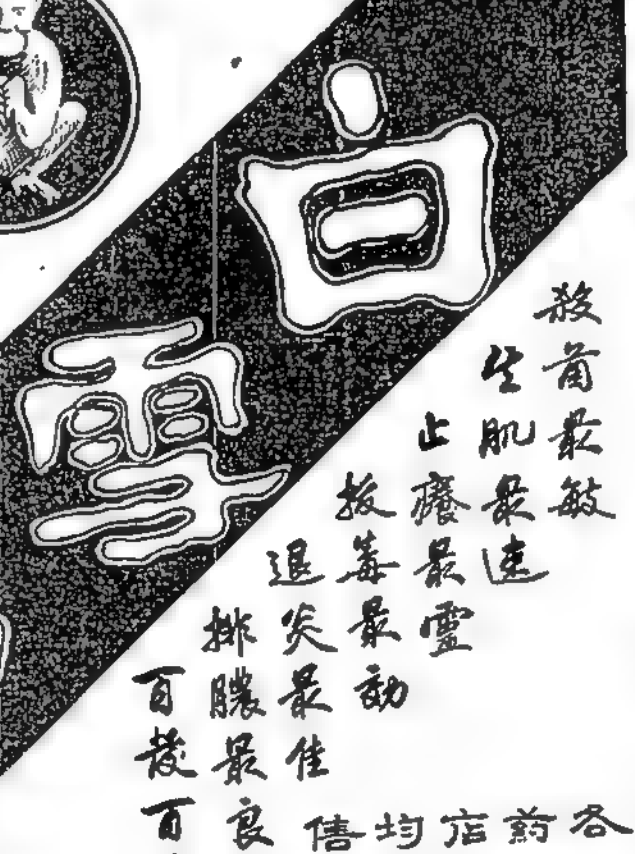 白雪
殺菌最敏
生肌最速
止癢最靈
拔毒最効
退炎最佳
排膿最良
百發百
各葯店均售